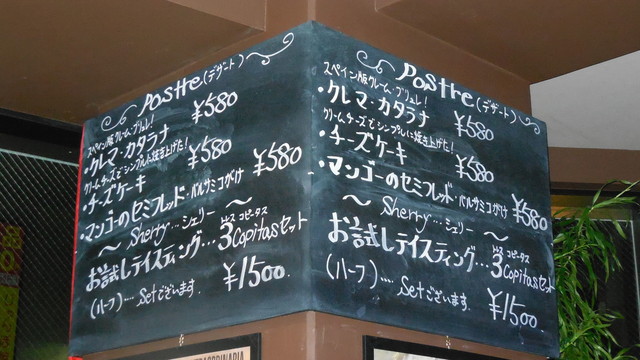 Postre (デザート)
スペイン版クレーム・ブリュレ!
・クレマ・カタラナ ¥580
クリームチーズでシンプルに焼き上げた!
・チーズケーキ ¥580
・マンゴーのセミフレッド・バルサミコがけ ¥580
〜 Sherry…シェリー 〜
お試しテイスティング…3 Copitasセット
トレス コピータス
(ハーフ)…. Setございます. ¥1500.
Postre (デザート)
スペイン版クレーム・ブリュレ!
・クレマ・カタラナ ¥580
クリームチーズでシンプルに焼き上げた!
・チーズケーキ ¥580
・マンゴーのセミフレッド・バルサミコがけ ¥580
〜 Sherry…シェリー 〜
トレス コピータス
お試しテイスティング…3 Copitasセット
(ハーフ)…. Setございます. ¥1500.